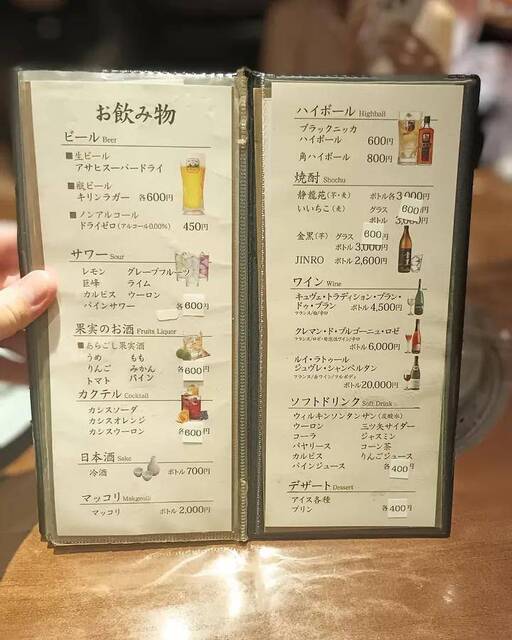 お飲み物
ビール Beer
■生ビール
アサヒスーパードライ
■瓶ビール
キリンラガー 各600円
■ノンアルコール
ドライゼロ(アルコール0.00%) 450円
サワー Sour
レモン グレープフルーツ
巨峰 ライム
カルピス ウーロン
パインサワー 各600円
果実のお酒 Fruits Liquor
■あらごし果実酒
うめ もも
りんご みかん
トマト パイン
各600円
カクテル Cocktail
カシスソーダ
カシスオレンジ
カシスウーロン 各600円
日本酒 Sake
冷酒 ボトル700円
マッコリ Makgeolli
マッコリ ボトル2,000円
ハイボール Highball
ブラックニッカ
ハイボール 600円
角ハイボール 800円
焼酎 Shochu
静龍苑(芋・麦) ボトル各3,000円
いいちこ(麦) グラス 600円
ボトル3,000円
金黒(芋) グラス 600円
ボトル3,000円
JINRO ボトル2,600円
ワイン Wine
キュヴェ・トラディション・ブラン・
ドゥ・ブラン ボトル4,500円
フランス/白/辛口
クレマン・ド・ブルゴーニュ・ロゼ
フランス/ロゼ・発泡酒ワイン/辛口
ボトル6,000円
ルイ・ラトゥール
ジュヴレ・シャンベルタン
フランス/赤ワイン/フルボディ
ボトル20,000円
ソフトドリンク Soft Drink
ウィルキンソンタンサン(炭酸水)
ウーロン 三ツ矢サイダー
コーラ ジャスミン
バヤリース コーン茶
カルピス りんごジュース
パインジュース 各400円
デザート Dessert
アイス各種
プリン 各400円